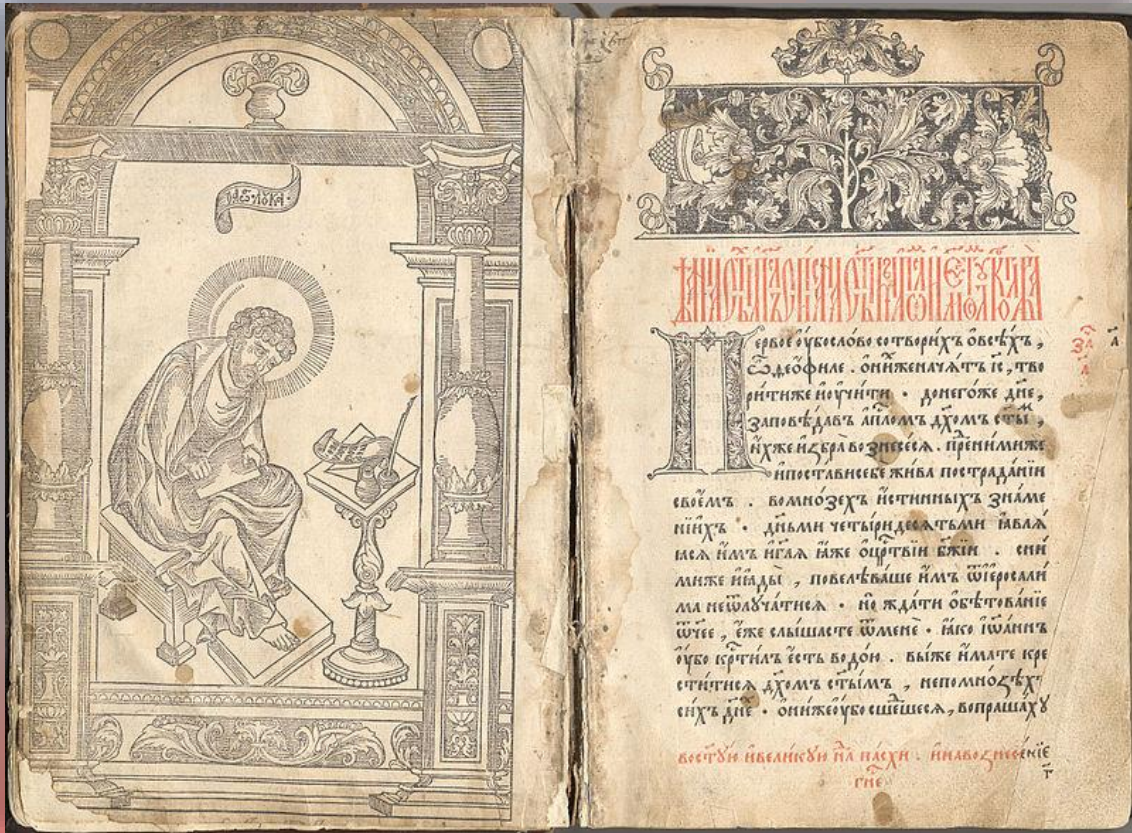 лꙋка
ервое ᲂу҆бо слово сотвори́хъ ѡ҆всѣ́хъ ,
ѽ дεо́филе . ѡ҆ни́хже нача́тъ і҆с , тво
ри́тиже и҆ ᲂу҆чи́ти · донего́же дн҃е ,
заповѣ́давъ а҆пⷭ҇ломъ дх҃омъ ст҃ыⷨ ,
и҆́хже и҆збра̀ вознесе́сѧ . пре́ними же
и҆ поста́ви себе жи́ва пострада́нїи
свое́мъ . во мно́зехъ и҆́стинныхъ зна́ме
нїихъ · дн҃ьми четы́ридесѧтьми ꙗ҆влѧ́
ꙗсѧ и҆̀мъ и҆ г҃лѧ ꙗ҆́же ѡ҆ црⷭ҇твїи бж҃їи . сни́
миже и҆ ꙗ҆ды̀ , повелѣ́ваше и҆̀мъ ѿ і҆еросали́
ма не ѿлꙋча́тисѧ · но жда́ти ѡ҆бѣтова́нїе
ѿч҃ее , е҆́же слы́шасте ѿ менѐ · ꙗ҆́ко і҆ѡ҆́аннъ
ᲂу҆́бо крⷭ҇ти́лъ є҆́сть водо́ю . вы́же и҆́мате кре
сти́тисѧ дх҃омъ ст҃ы́мъ , не по мно́ѕѣхъ
си́хъ дн҃е · ѡ҆ни́же ᲂу҆бо сше́дшесѧ , вопраша́хꙋ
за
а҃
а҃
во ст҃ꙋю и҆ вели́кꙋю нⷣлю па́схи . и҆ на вознесе́нїе
гн҃е